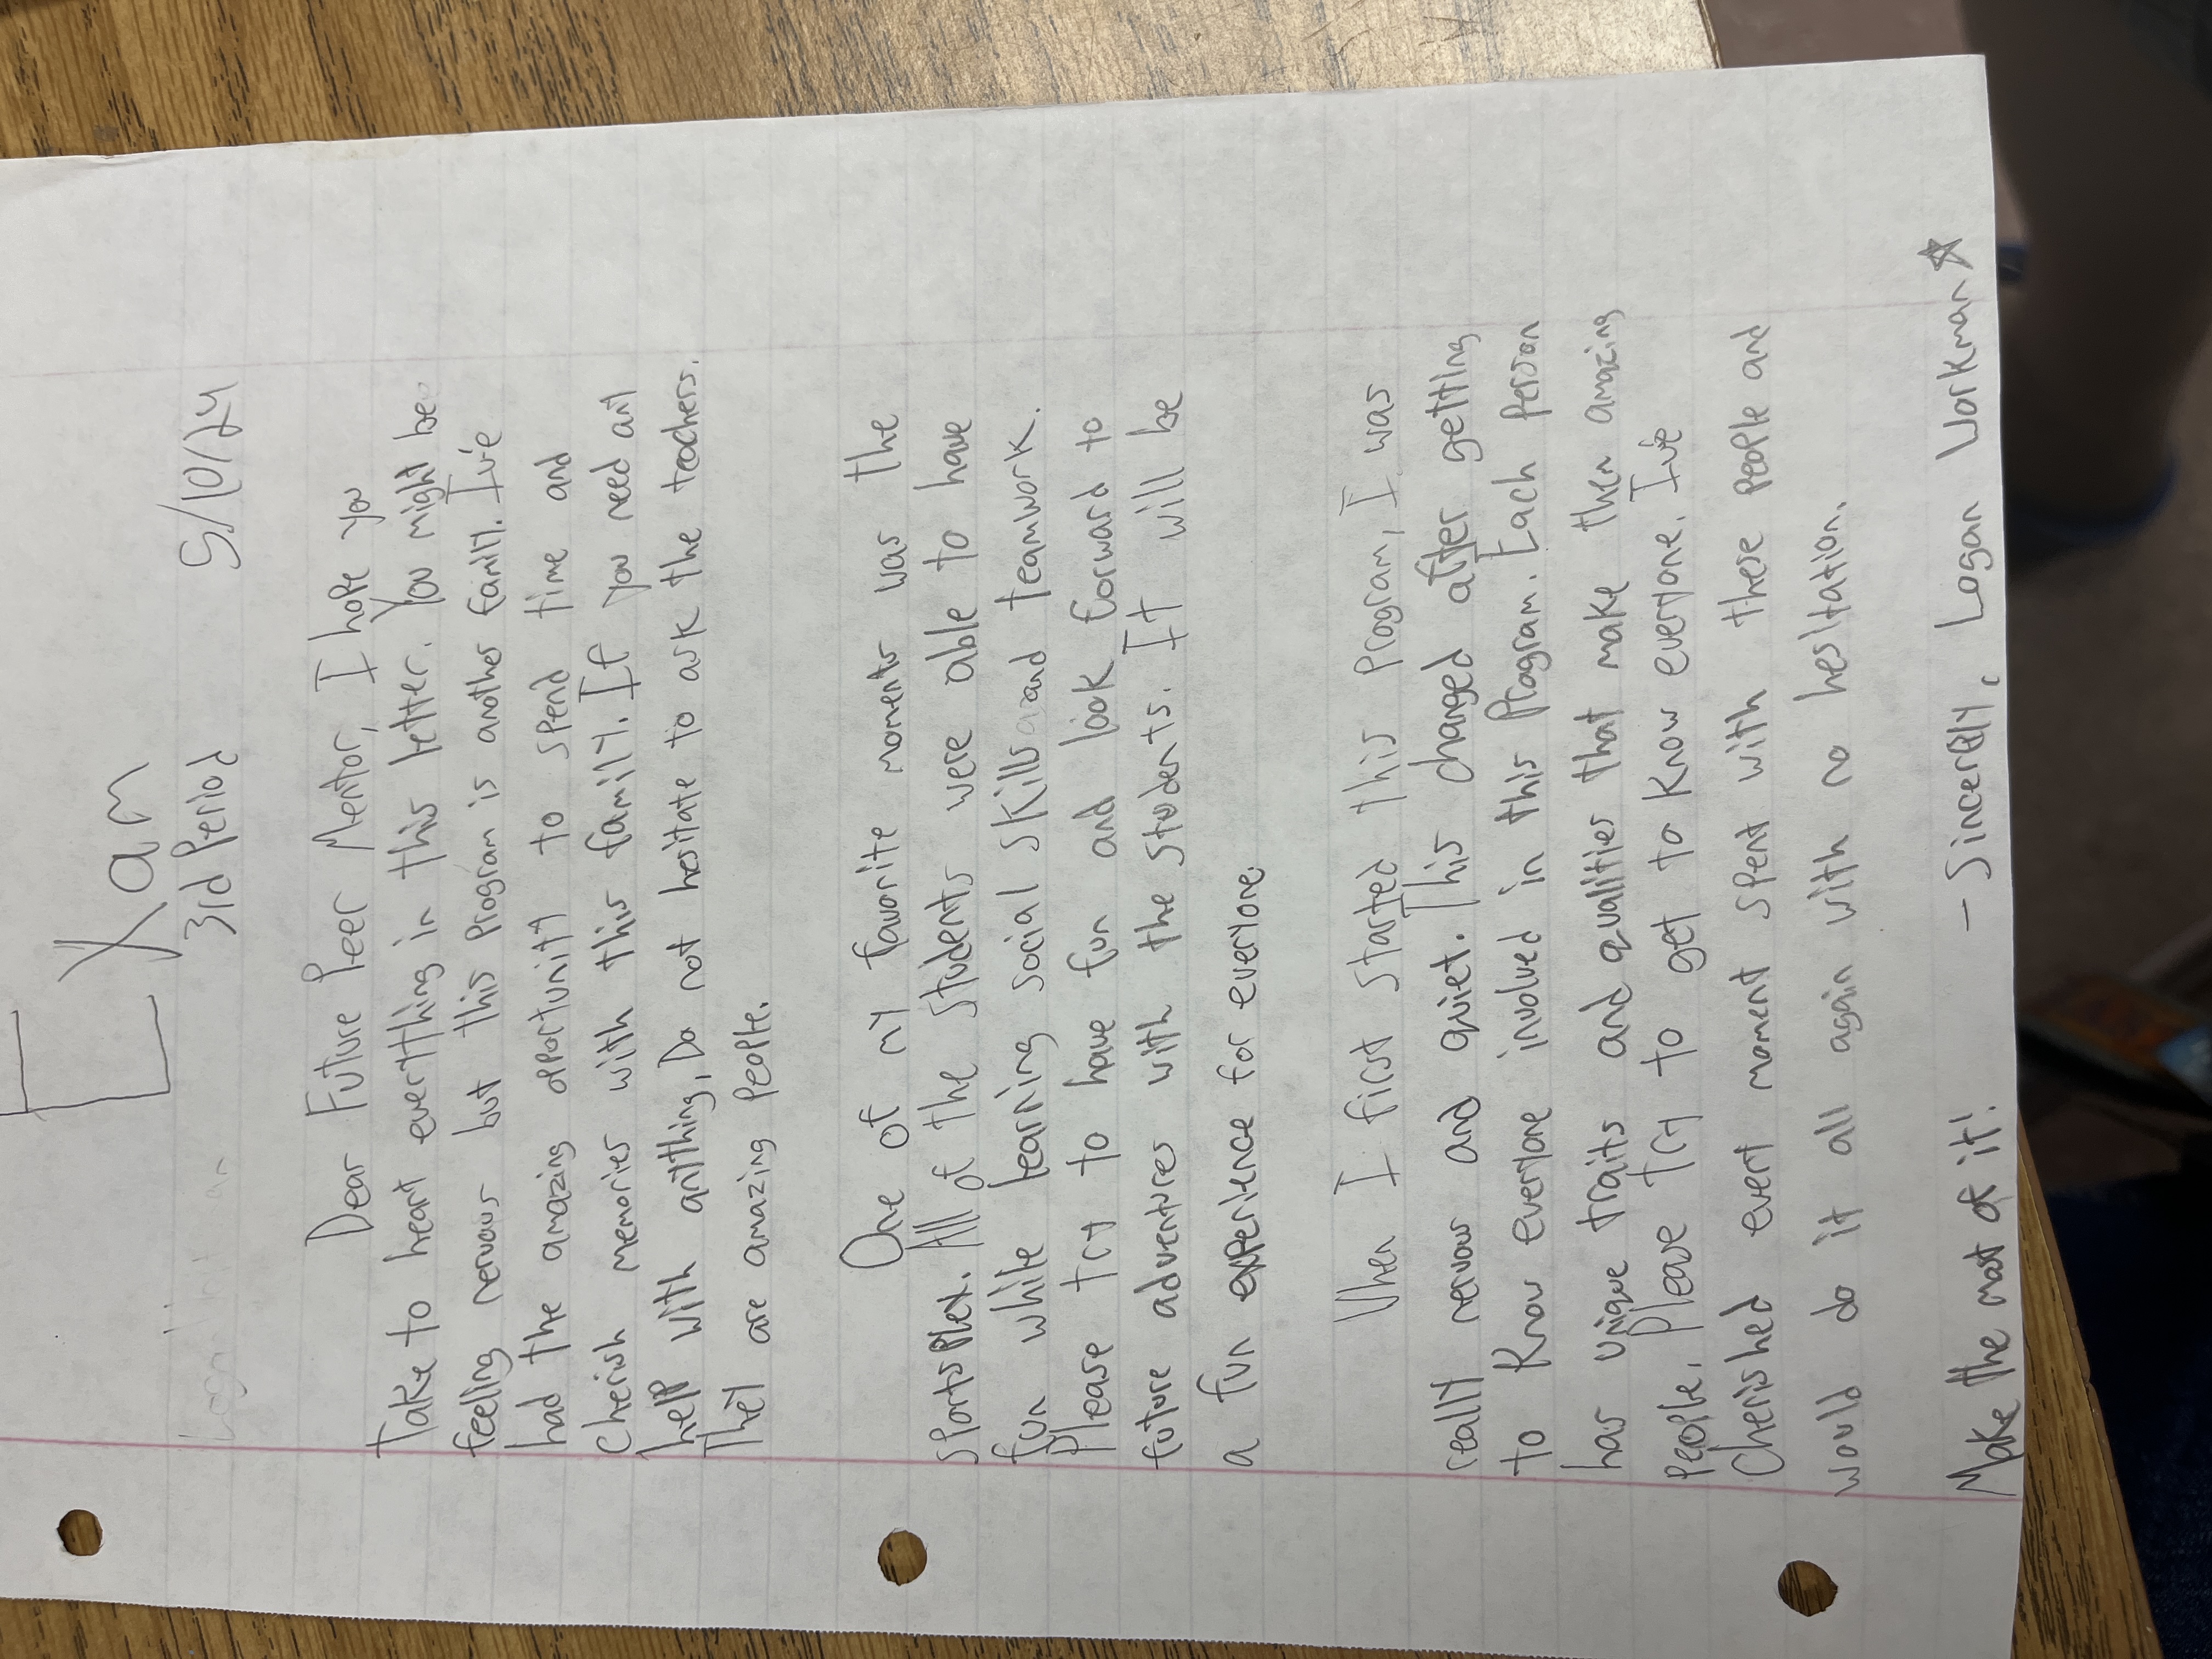 Exam
3rd Period 5/10/24
Dear Future Peer Mentor, I hope you
take to heart everything in this letter. You might be
feeling nervous but this program is another family. I've
had the amazing opportunity to spend time and
cherish memories with this family. If you need any
help with anything, Do not hesitate to ask the teachers.
They are amazing people.
One of my favorite moments was the
sportsplex. All of the students were able to have
fun while learning social skills and teamwork.
Please try to have fun and look forward to
future adventures with the students. It will be
a fun experience for everyone.
When I first started this program, I was
really nervous and quiet. This changed after getting
to know everyone involved in this program. Each person
has unique traits and qualities that make them amazing
people. Please try to get to know everyone. I've
Cherished every moment spent with these people and
would do it all again with no hesitation.
Make the most of it! - Sincerely, Logan Workman